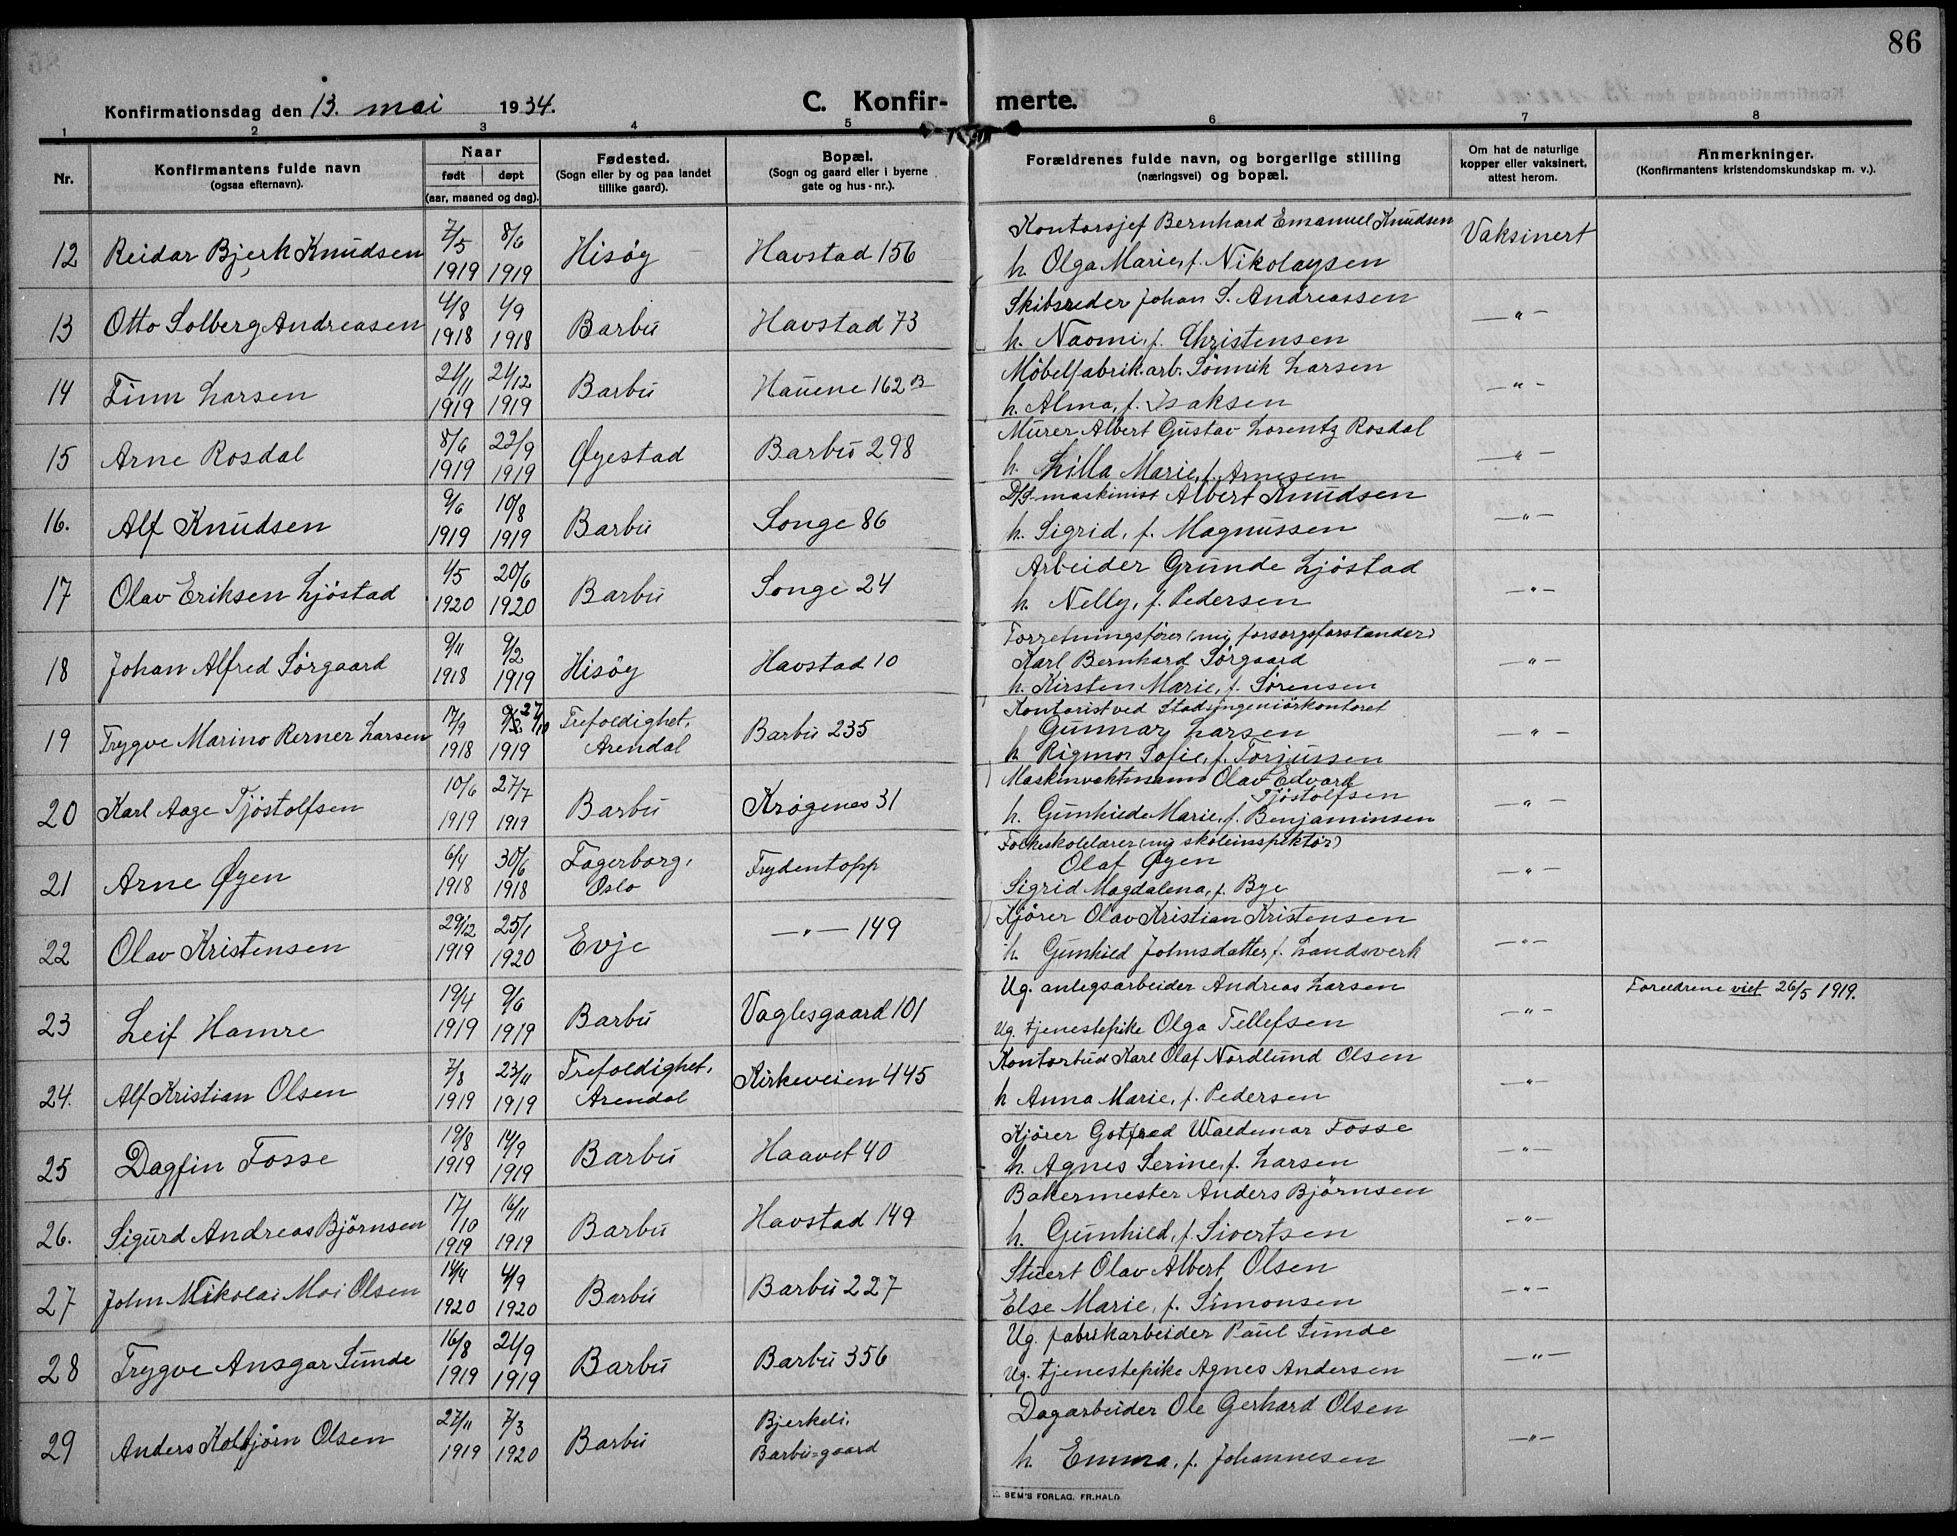 86
Konfirmationsdag den 13. mai 1934. C. Konfir- merte.
1 2 3 4 5 6 7 8
Nr.
Konfirmantens fulde navn
(ogsaa efternavn).
Naar
født døpt
(aar, maaned og dag).
Fødested.
(Sogn eller by og paa landet
tillike gaard).
Bopæl.
(Sogn og gaard eller i byerne
gate og hus-nr.).
Forældrenes fulde navn, og borgerlige stilling
(næringsvei) og bopæl.
Om hat de naturlige
kopper eller vaksinert,
attest herom.
Anmerkninger.
(Konfirmantens kristendomskundskap m. v.).
12 Reidar Bjerk Knudsen 7/5 1919 8/6 1919 Hisøy Havstad 156
Kontorsjef Bernhard Emanuel Knudsen
h. Olga Marie, f. Nikolaysen
Vaksinert
13 Otto Solberg Andreasen 4/8 1918 1/9 1918 Barbu Havstad 73
Skibsreder Johan S. Andreassen
h. Naomi, f. Christensen
—"—
14 Finn Larsen 21/11 1919 21/12 1919 Barbu Hauene 162 B
Möbelfabrik.arb. Sönnik Larsen
h. Alma, f. Isaksen
—"—
15 Arne Rosdal 8/6 1919 22/9 1919 Øyestad Barbu 298
Murer Albert Gustav Lorentz Rosdal
h. Lilla Marie, f. Arnesen
—"—
16. Alf Knudsen 9/6 1919 10/8 1919 Barbu Songe 86
D/S-maskinist Albert Knudsen
h. Sigrid, f. Magnussen
—"—
17 Olav Eriksen Ljöstad 1/5 1920 20/6 1920 Barbu Songe 24
Arbeider Grunde Ljöstad
h. Nelly, f. Pedersen
—"—
18 Johan Alfred Sørgaard 9/11 1918 9/2 1919 Hisøy Havstad 10
Forretningsfører (nuj forsorgsforstander)
Karl Bernhard Sørgaard
h. Kirsten Marie, f. Sørensen
—"—
19 Trygve Marino Rerner Larsen 17/9 1918 27/10 1919 Trefoldighet, Arendal Barbu 235
Kontorist ved Stadsingeniörkontoret
Gunnar Larsen
h. Rigmor Sofie, f. Torjussen
—"—
20 Karl Aage Tjöstolfsen 10/6 1919 27/7 1919 Barbu Krøgenes 31
Maskinvaktmann Olav Edvard
Tjöstolfsen
h. Gunhilde Marie, f. Benjaminsen
—"—
21 Arne Øyen 6/4 1918 30/6 1918 Fagerborg, Oslo Frydentopp
Folkeskolelærer (nuj skoleinspektør)
Olaf Øyen
Sigrid Magdalena, f. Bye
—"—
22 Olav Kristensen 29/12 1919 25/1 1920 Evje —"— 149
Kjører Olav Kristian Kristensen
h. Gunhild Johnsdatter, f. Landsverk
—"—
23 Leif Hamre 19/4 1919 9/6 1919 Barbu Vaglesgaard 101
Ug. anlegsarbeider Andreas Larsen
Ug. tjenestepike Olga Tellefsen
—"—
Foreldrene viet 26/5 1919.
24. Alf Kristian Olsen 7/8 1919 23/11 1919 Trefoldighet, Arendal Kirkeveien 445
Kontorbud Karl Olaf Nordlund Olsen
h Anna Marie, f. Pedersen
—"—
25 Dagfin Fosse 19/8 1919 14/9 1919 Barbu Haavet 40
Kjører Gotfred Waldemar Fosse
h. Agnes Serine, f. Larsen
—"—
26. Sigurd Andreas Bjørnsen 17/10 1919 16/11 1919 Barbu Havstad 149
Bakermester Anders Bjørnsen
h. Gunhild, f. Sivertsen
—"—
27 John Nikolai Moi Olsen 14/4 1920 4/9 1920 Barbu Barbu 227
Stuert Olav Albert Olsen
Else Marie, f. Simonsen
—"—
28 Trygve Ansgar Sunde 16/8 1919 21/9 1919 Barbu Barbu 356
Ug. fabrikarbeider Paul Sunde
Ug. tjenestepike Agnes Andersen
—"—
29 Anders Kolbjørn Olsen 27/11 1919 7/3 1920 Barbu Bjerkeli, Barbu=gaard
Dagarbeider Ole Gerhard Olsen
h. Emma, f. Johannesen
—"—
SEM'S FORLAG, FR.HALD